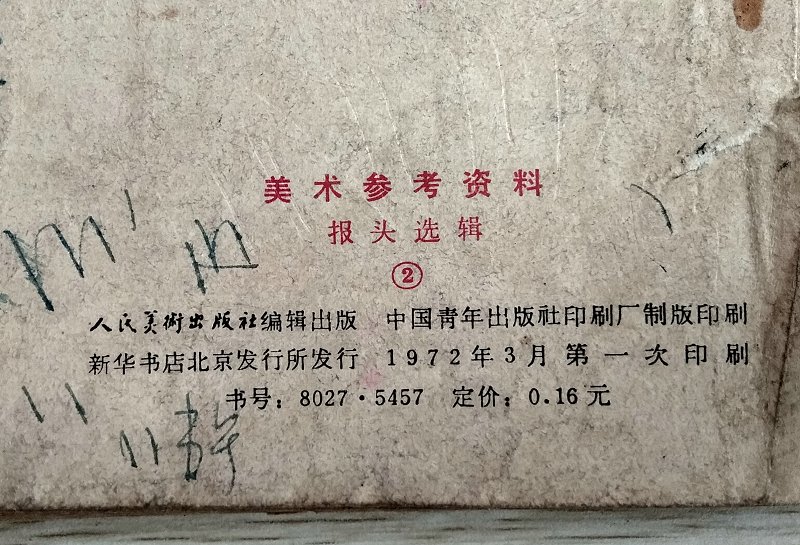 美术参考资料
报头选辑
②
人民美術出版社编辑出版 中国青年出版社印刷厂制版印刷
新华书店北京发行所发行 1972年3月第一次印刷
书号：8027·5457 定价：0.16元